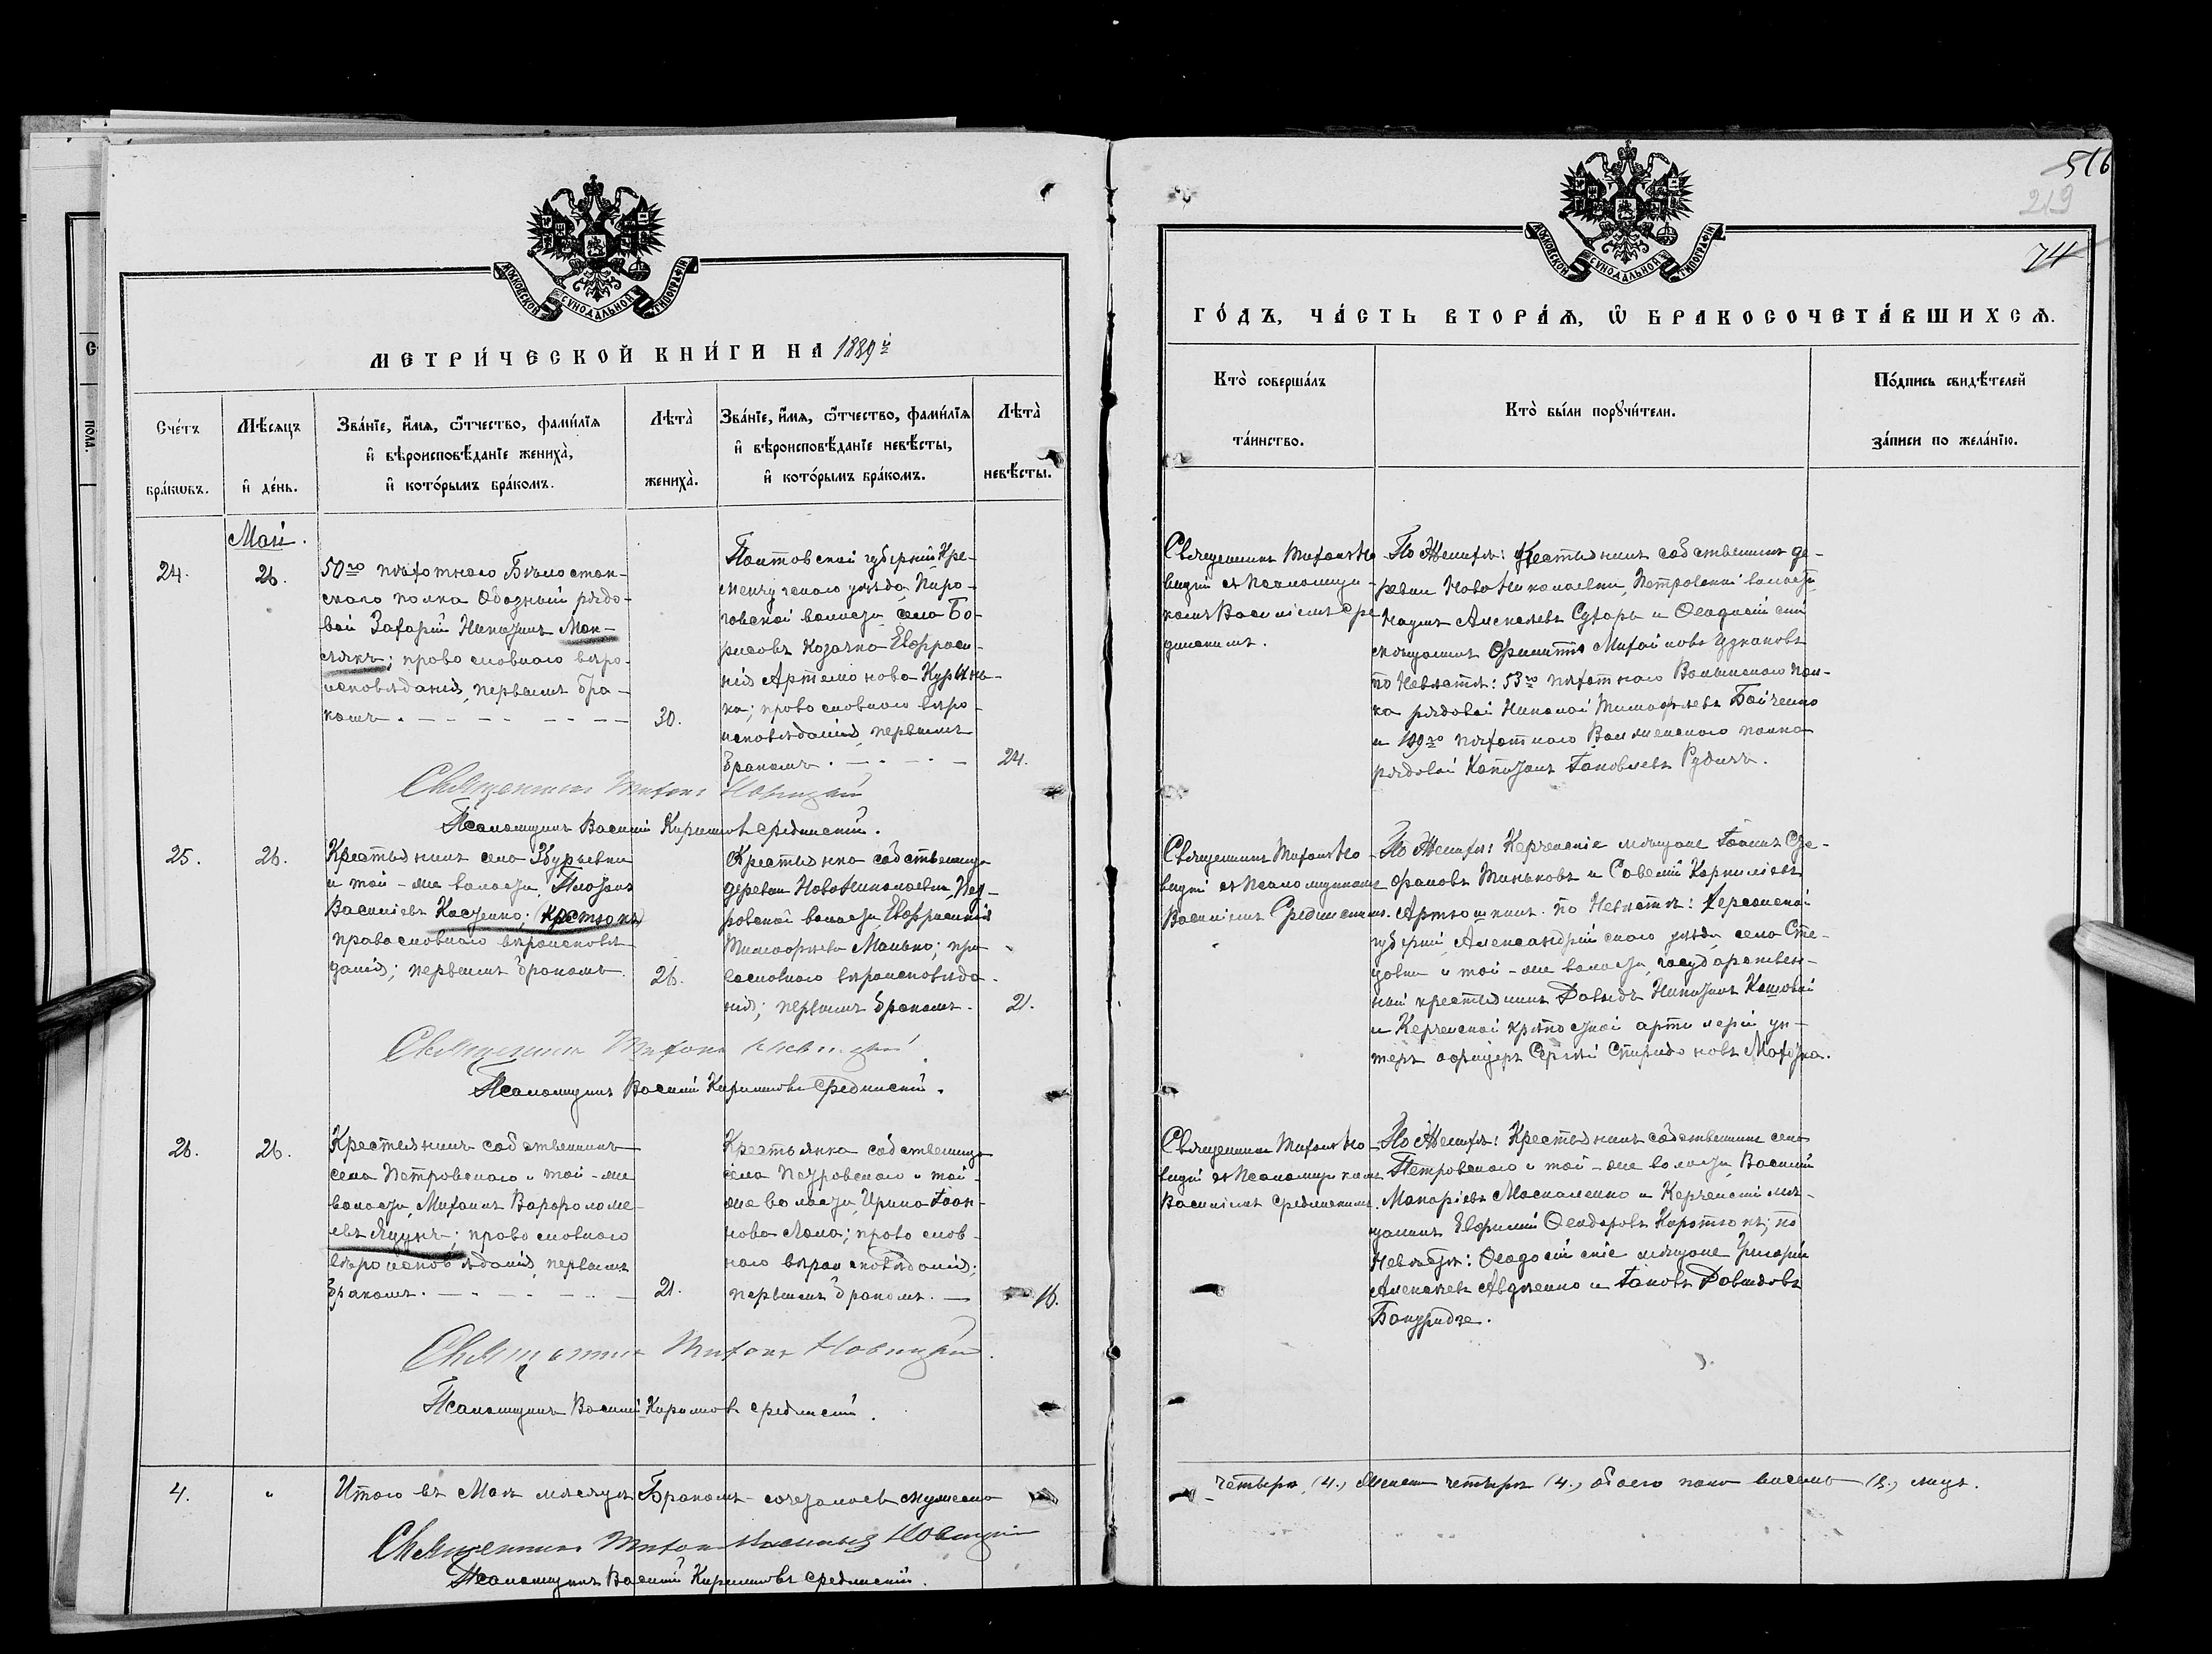 МОСКОВСКОЙ СУНОДАЛЬНОЙ ТИПОГРАФІИ
МЕТРИ́ЧЕСКОЙ КНИ́ГИ НА 1889й
Сче́тъ бра́кѡвъ.
Мѣ́сяцъ и҆ де́нь.
Зва́нїе, и҆́мя, ѻ҆́тчество, фами́лїя
и҆ вѣроисповѣ́данїе жениха̀,
и҆ кото́рымъ бра́комъ.
Лѣта̀ жениха̀.
Зва́нїе, и҆́мя, ѻ҆́тчество, фами́лїя
и҆ вѣроисповѣ́данїе невѣ́сты,
и҆ кото́рымъ бра́комъ.
Лѣта̀ невѣ́сты.
Май.
24.
26.
50го пѣхотнаго Бѣлосток-
скаго полка Обозный рядо-
вой Захарій Никитинъ Мок-
сякъ; православнаго вѣро-
исповѣданія, первымъ бра-
комъ.
30.
Полтавской губерніи Кре-
менчугскаго уѣзда, Пиро-
говской волости села Бо-
рисовъ козачка Евфроси-
нія Артемонова
ка; православнаго вѣро-
исповѣданія, первымъ
бракомъ.
24.
Священникъ Тихонъ Новицкій
Псаломщикъ Василій Кирилловъ Срединскій.
25.
26.
Крестьянинъ села Збурьевки
и той-же волости, Платонъ
Васильевъ Костенко; (Крстюкъ)
православнаго вѣроисповѣ-
данія; первымъ бракомъ.
26.
Крестьянка собственница
деревни НовоНиколаевки, Пет-
ровской волости, Евфросинія
Тимофеева Манько; пра-
вославнаго вѣроисповѣда-
нія; первымъ бракомъ.
21.
Священникъ Тихонъ Новицкій.
Псаломщикъ Василій Кирилловъ Срединскій.
26.
26.
Крестьянинъ собственникъ
села Петровскаго и той-же
волости, Михаилъ Варфоломе-
евъ Яцунъ; православнаго
вѣроисповѣданія, первымъ
бракомъ.
21.
Крестьянка собственница
села Петровскаго и той-
же волости, Ирина Іоан-
нова Лола; православ-
наго вѣроисповѣданія;
первымъ бракомъ.
16.
Священникъ Тихонъ Новицкій.
Псаломщикъ Василій Кирилловъ Срединскій.
4.
"
Итого въ Маѣ мѣсяцѣ Бракомъ сочеталось мужеска
Священникъ Тихонъ Новицкій
Псаломщикъ Василій Кирилловъ Срединскій.
516
219
74
МОСКОВСКОЙ СУНОДАЛЬНОЙ ТИПОГРАФІИ
ГО́ДЪ, ЧА́СТЬ ВТОРА́Я, Ѡ҆ БРАКОСОЧЕТА́ВШИХСЯ.
Кто̀ соверша́лъ та́инство.
Кто̀ бы́ли порꙋчи́тели.
По́дпись свидѣ́телей
за́писи по жела́нїю.
Священникъ Тихонъ Но-
вицкій съ Псаломщи-
комъ Василіемъ Сре-
динскимъ.
По Женихѣ: Крестьянинъ собственникъ де-
ревни НовоНиколаевки, Петровской волости
Наумъ Алексѣевъ Сухарь и Ѳеодосійскій
мѣщанинъ Филиппъ Михайловъ Цукановъ
по Невѣстѣ: 53го пѣхотнаго Волынскаго пол-
ка рядовой Николай Тимофѣевъ Бойченко
и пѣхотнаго полка
рядовой Капитонъ Іаковлевъ Рудичъ.
Священникъ Тихонъ Но-
вицкій съ Псаломщикомъ
Василіемъ Срединскимъ.
По Женихѣ: Керченскіе мѣщане Іоаннъ Сте-
фановъ Тиньковъ и Савелій Корниліевъ
Артюшкинъ. по Невѣстѣ: Херсонской
губерніи, Александрійскаго уѣзда села Сте-
цовки и той-же волости, государствен-
ный крестьянинъ Давидъ Никитинъ Кошовой
и Керченской крѣпостной артилеріи ун-
теръ офицеръ Сергѣй Спиридоновъ Махотка.
Священникъ Тихонъ Но-
вицкій съ Псаломщикомъ
Василіемъ Срединскимъ.
По Женихѣ: Крестьянинъ собственникъ села
Петровскаго и той-же волости, Василій
Макаріевъ Москаленко и Керченскій мѣ-
щанинъ Евфимій Ѳеодоровъ Коротюкъ; по
Невѣстѣ: Ѳеодосійскіе мѣщане Григорій
Алексѣевъ Авдѣенко и Іаковъ Давидовъ
Бокуридзе.
четыре (4.), Женска четыре (4.), обоего пола восемь (8.), лицъ.